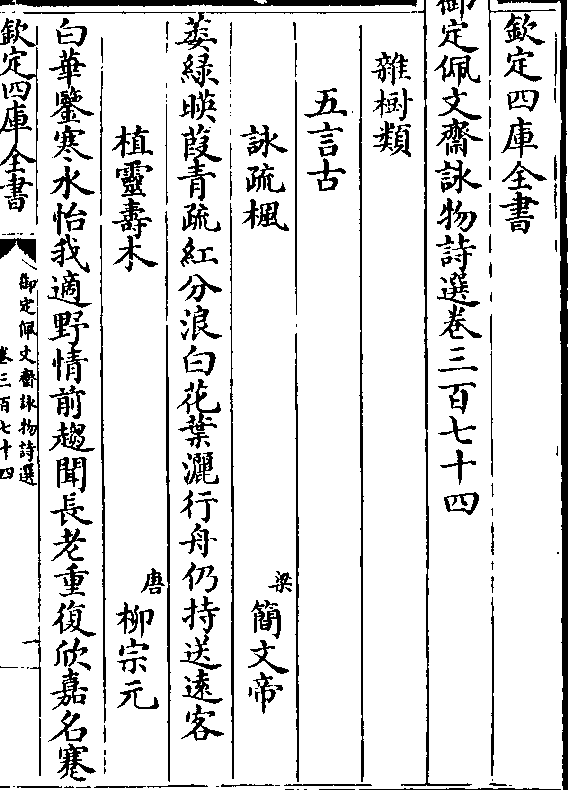 欽定四庫全書
御定佩文齋詠物詩選卷三百七十四
雜樹類
五言古
詠疏楓 梁 簡文帝
萎綠映葭青疏紅分浪白花葉灑行舟仍持送遠客
植靈壽木 唐 柳宗元
白華鑒寒水怡我適野情前趨聞長老重復欣嘉名蹇
欽定四庫全書
御定佩文齋詠物詩選
卷三百七十四
一